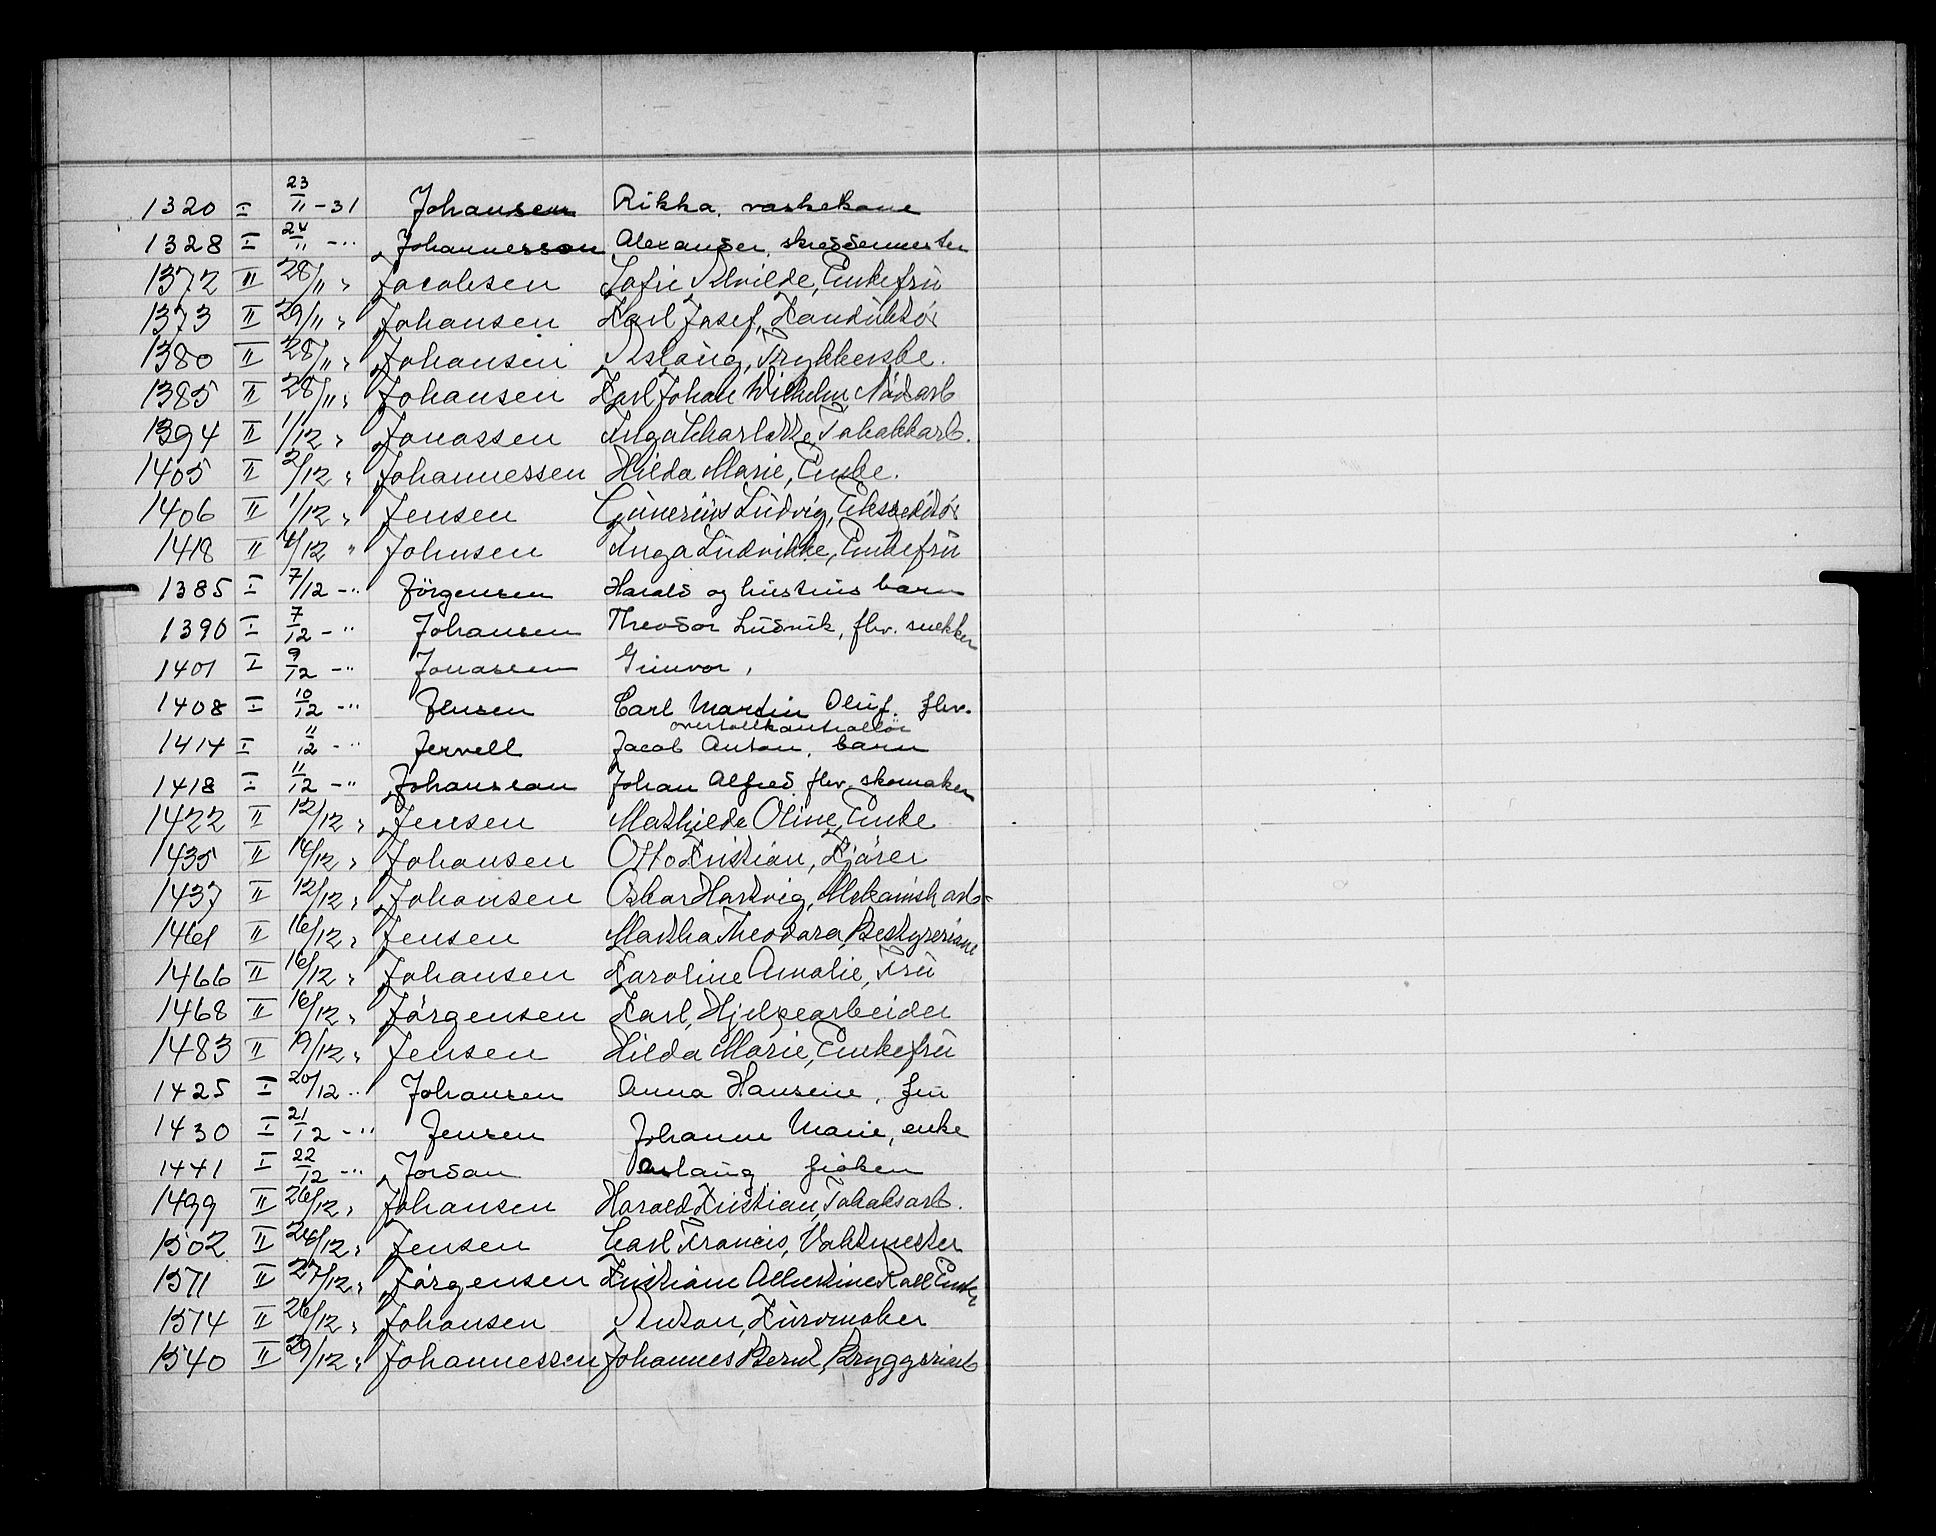 1320 I 23/11 - 31 Johansen Rikka, vaskekone
1328 I 24/11 - " Johannesson Alexander, skreddermester
1372 II 28/11 " Jacobsen Sofie Alvilde, Enkefrü
1373 II 29/11 " Johansen Karl Josef, Konduktör
1380 II 28/11 " Johansen Aslaug, Trykkerske.
1385 II 28/11 " Johansen Karl Johan Wilhelm Nödarb
1394 II 1/12 " Jonassen Inga Charlotte, Tobakkarb.
1405 II 2/12 " Johannessen Hilda Marie, Enke.
1406 II 1/12 " Jensen Gunerius Ludvig, Ekspeditör
1418 II 4/12 " Johnsen Inga Ludvikke, Enkefrü
1385 I 7/12 - " Jörgensen Harald og hustrus barn
1390 I 7/12 - " Johansen Theodor Ludvik, fhv. snekker
1401 I 9/12 - " Jonassen Gunvor,
1408 I 10/12 - " Jensen Carl Martin Oluf. fhv.
overtollkontrollör
1414 I 11/12 - " Jervell Jacob Anton, barn
1418 I 11/12 - " Johansson Johan Alfred, fhv. skomaker
1422 II 12/12 " Jensen Mathilde Oline, Enke
1435 II 14/12 " Johansen Otto Kristian, Kjörer
1437 II 12/12 " Johansen Oskar Hartvig, Mekanisk arb.
1461 II 16/12 " Jensen Martha Theodora, Bestyrerinne
1466 II 16/12 " Johansen Karoline Amalie, Frü
1468 II 16/12 " Jörgensen Karl, Hjelpearbeider
1483 II 19/12 " Jensen Hilda Marie, Enkefrü
1425 I 20/12 " Johansen Anna Hansine, fru
1430 I 21/12 - " Jensen Johanne Marie, enke
1441 I 22/12 - " Jordan Aslaug, fröken
1499 II 26/12 " Johansen Harald Kristian, Tobaksarb.
1502 II 24/12 " Jensen Carl Francis, Vaktmester
1511 II 27/12 " Jörgensen Kristiane Albertine Roll Enke
1514 II 26/12 " Johansen Anton, Kurvmaker
1540 II 29/12 " Johannessen Johannes Bernt, Bryggeriarb